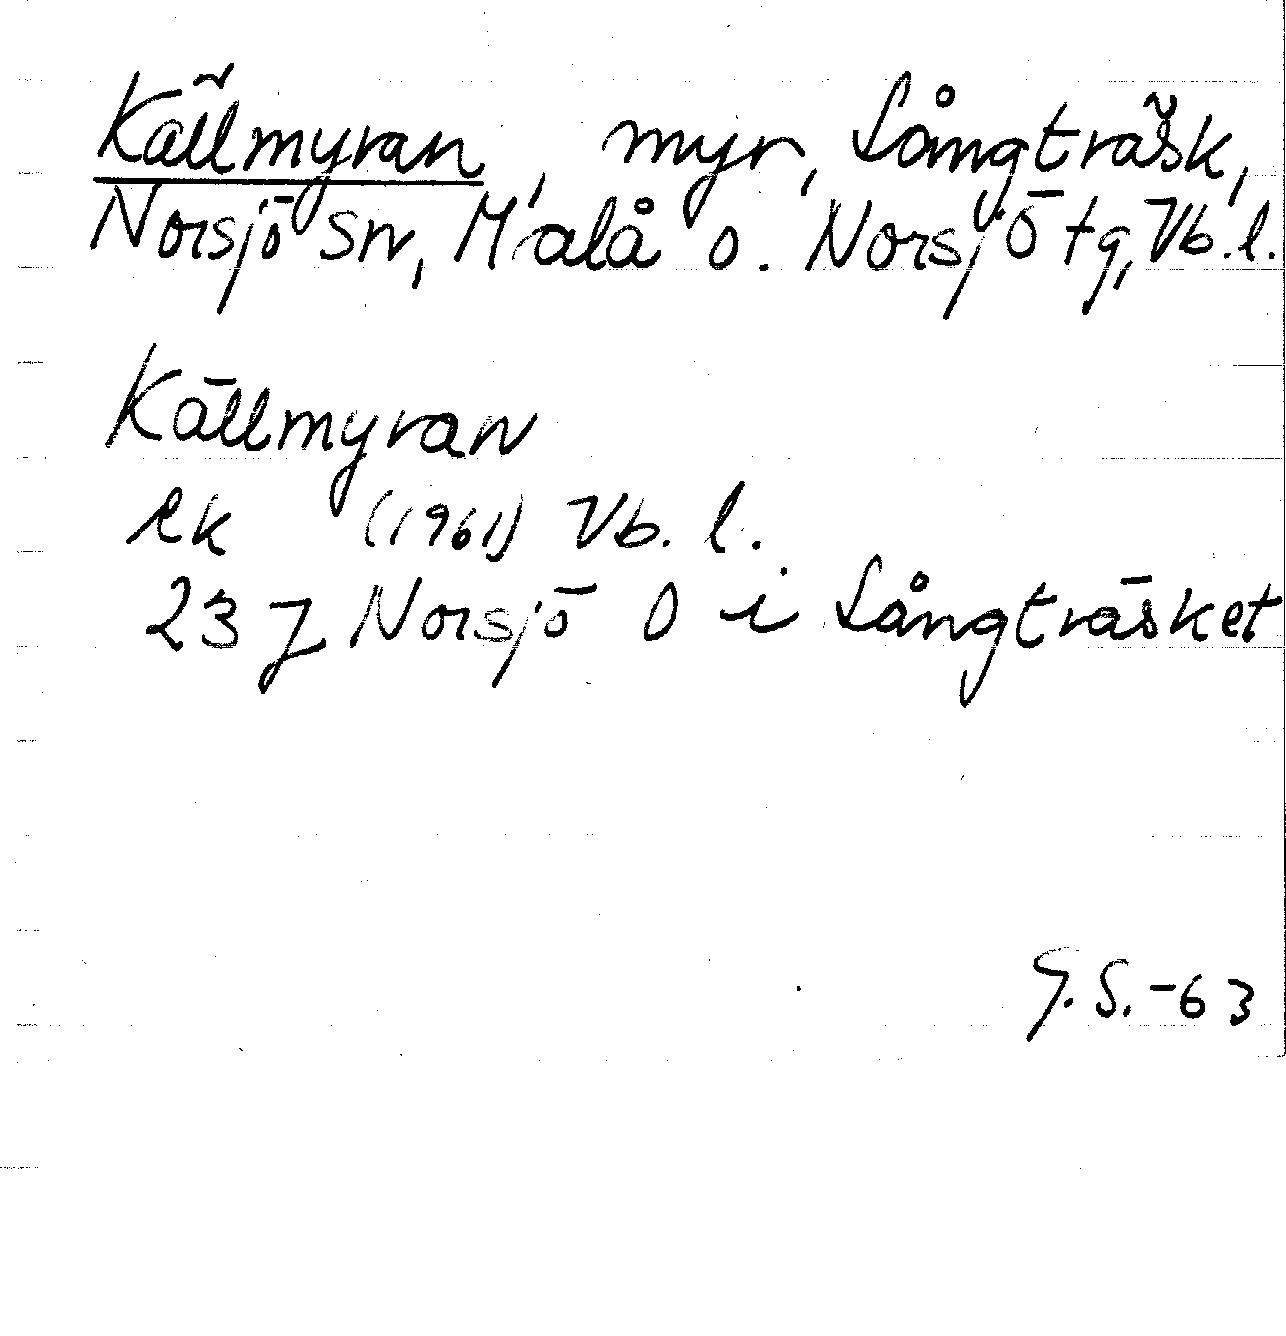 Källmyran, myr, Långträsk,
Norsjö sn, Malå o. Norsjö tg, Vb.l.
Källmyran
ek (1961) Vb. l.
23 J Norsjö O i Långträsket
G.S.-63